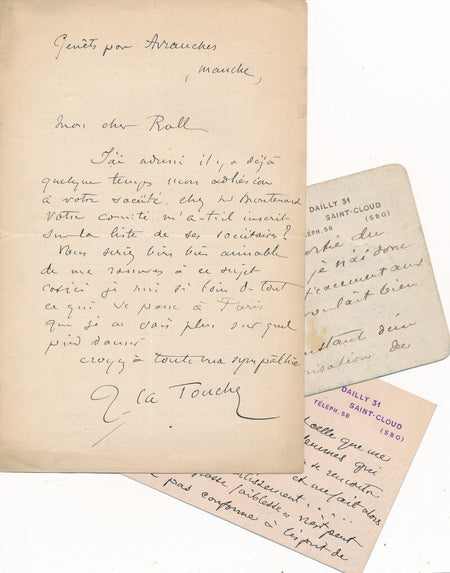 Genêts par Avranches
, Manche,
Mon cher Roll
J'ai adressé il y a déjà
quelque temps mon adhésion
à votre société, chez Mr Montenard
Votre comité m'a-t-il inscrit
sur la liste de ses sociétaires?
Vous seriez bien bien aimable
de me rassurer à ce sujet
car ici je suis si loin de tout
ce qui se passe à Paris
que je ne sais plus sur quel
pied danser
croyez à toute ma sympathie
G. La Touche
DAILLY 31
SAINT-CLOUD
TÉLÉPH. 58 (S&O)
du
je n'ai donc
aux
voulait bien
instant
de
DAILLY 31
SAINT-CLOUD
TÉLÉPH. 58 (S&O)
celle que me
femmes qui
se
et au fait alors
.....
faiblesse n'est peut
pas conforme à l'esprit de